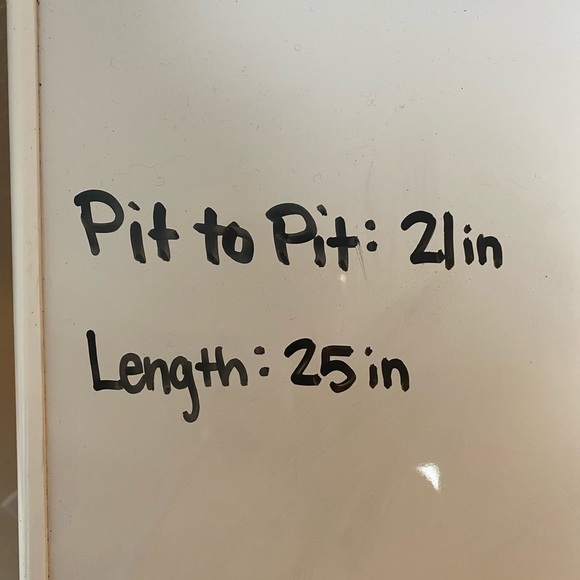 Pit to Pit: 21in
Length: 25in